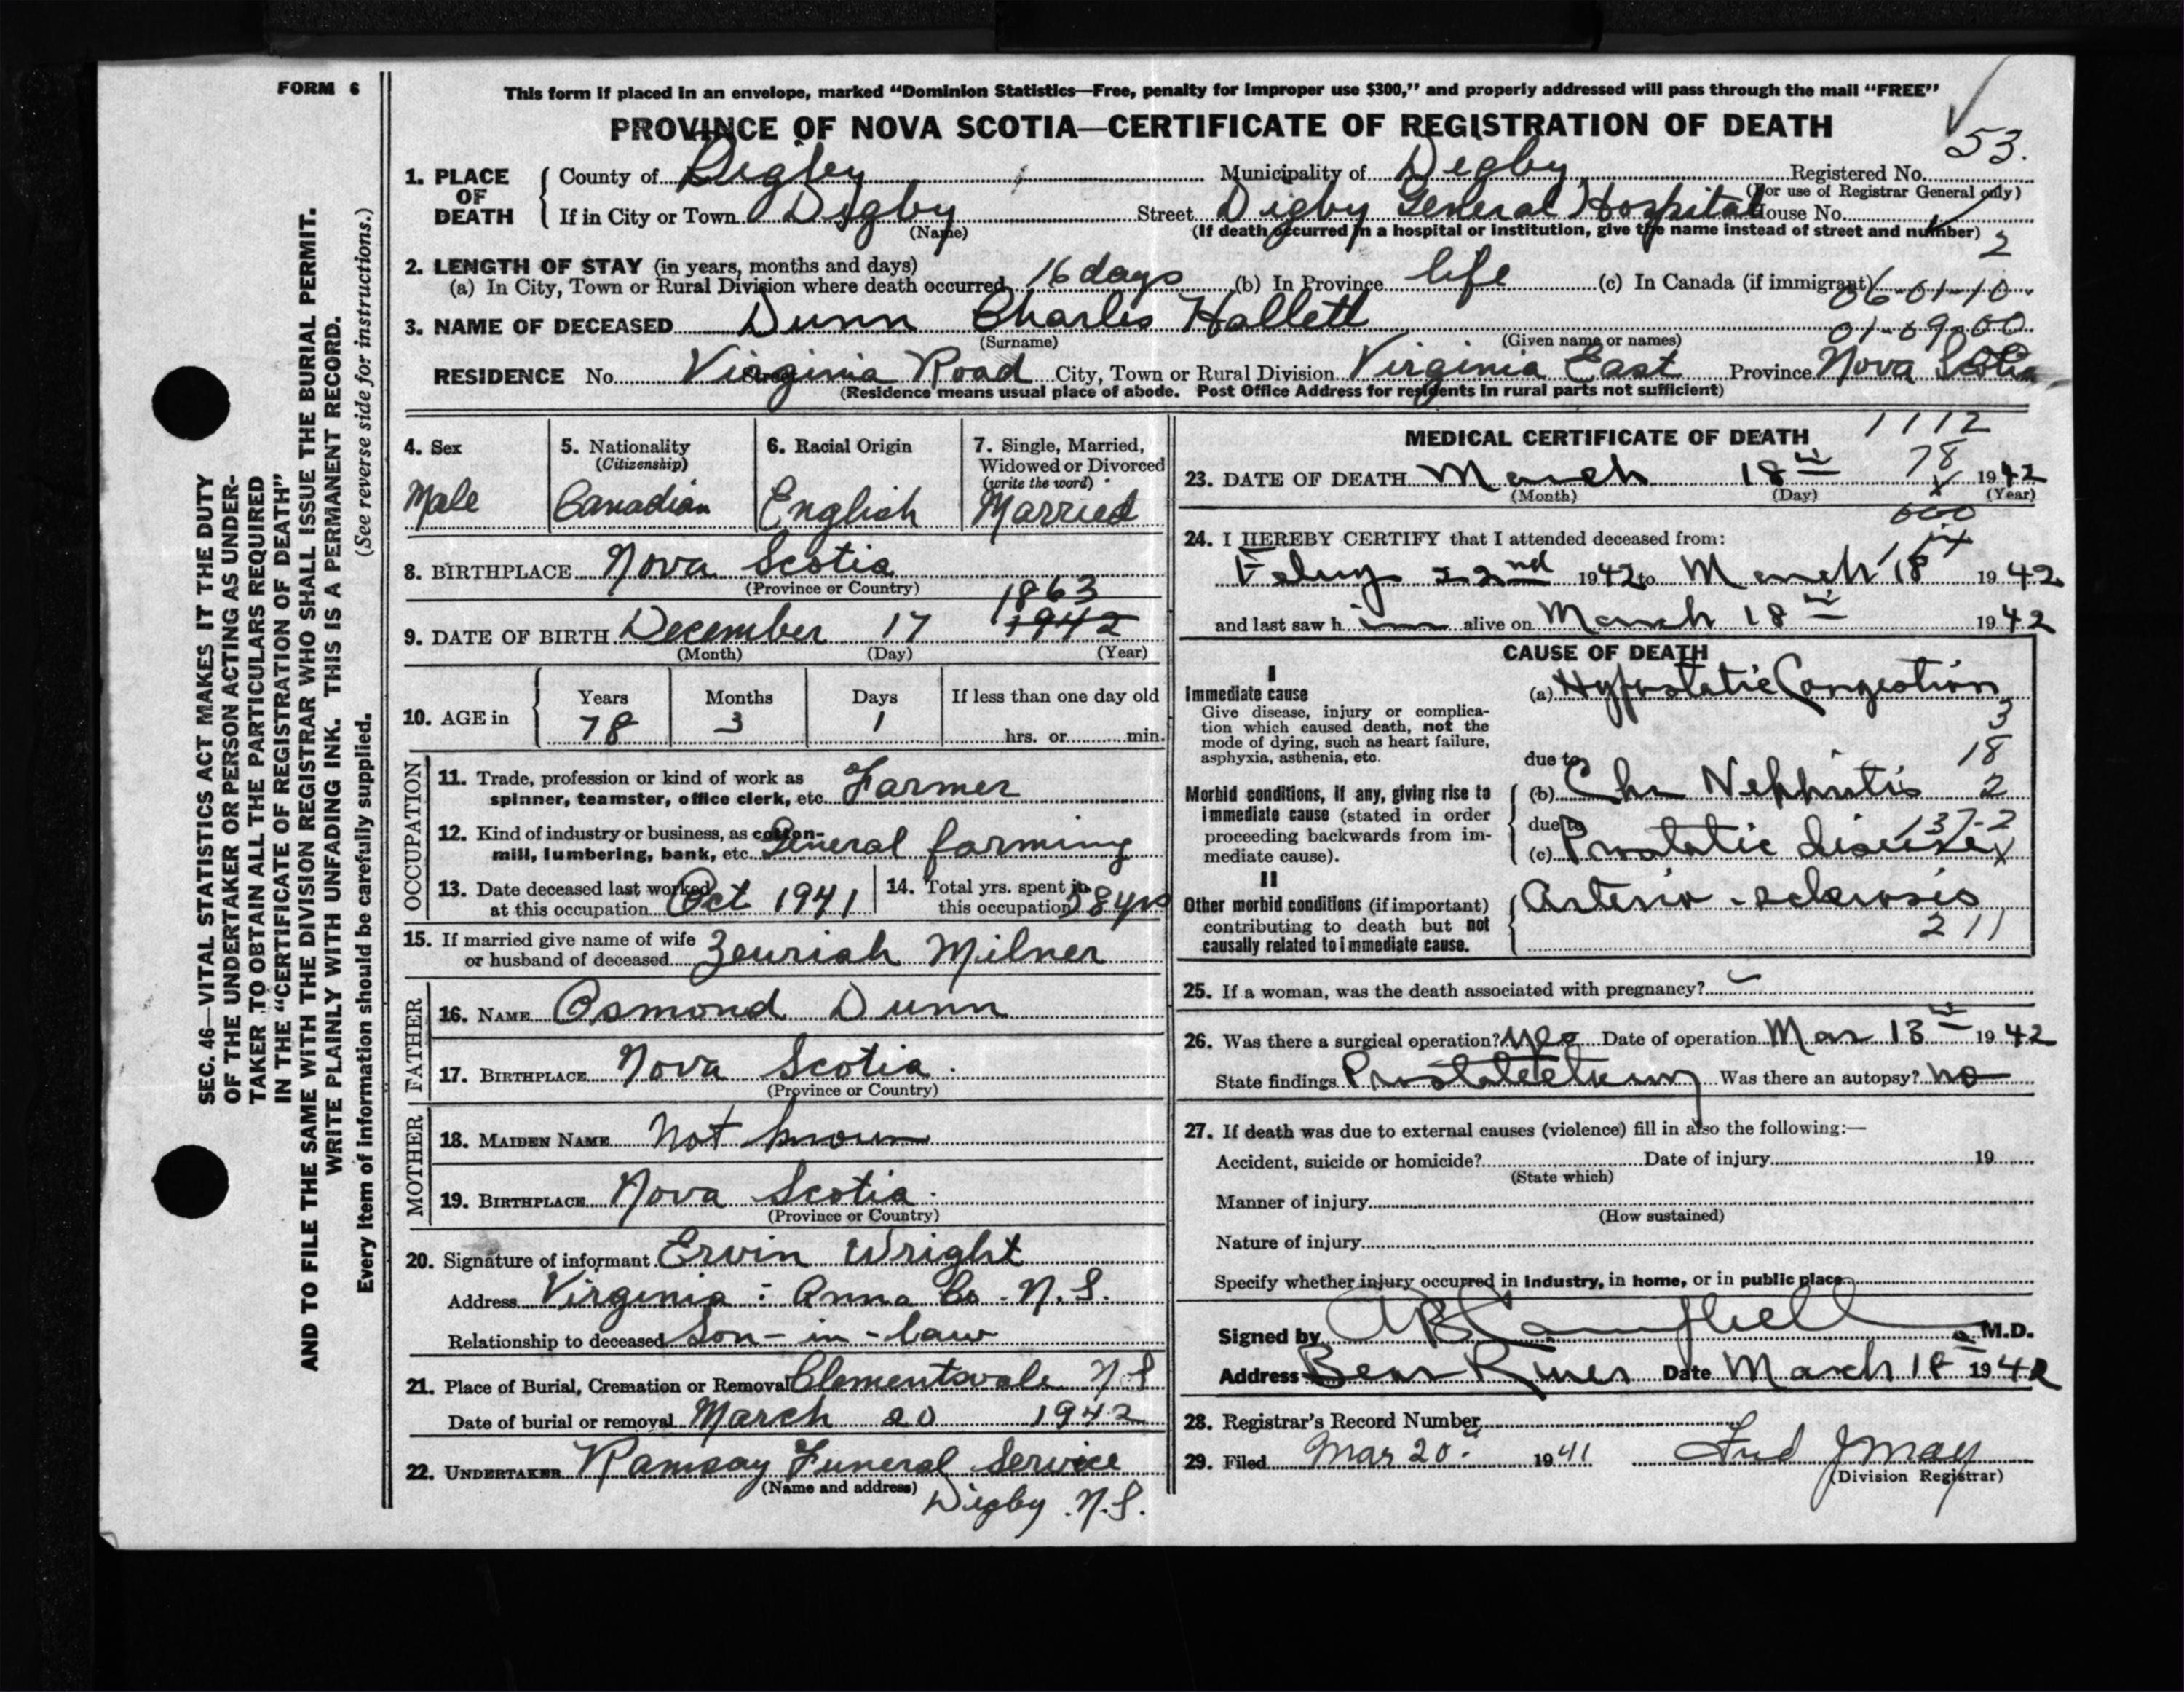 FORM 6
This form if placed in an envelope, marked "Dominion Statistics—Free, penalty for improper use $300," and properly addressed will pass through the mail "FREE"
PROVINCE OF NOVA SCOTIA—CERTIFICATE OF REGISTRATION OF DEATH
53.
1. PLACE OF DEATH County of Digby Municipality of Digby Registered No.
(For use of Registrar General only)
If in City or Town Digby Street Digby General Hospital House No.
(Name) (If death occurred in a hospital or institution, give the name instead of street and number)
2
2. LENGTH OF STAY (in years, months and days)
(a) In City, Town or Rural Division where death occurred 16 days (b) In Province life (c) In Canada (if immigrant)
06-01-10
3. NAME OF DECEASED Dunn Charles Hallett
01-09-00
(Surname) (Given name or names)
RESIDENCE No. Virginia Road Street City, Town or Rural Division Virginia East Province Nova Scotia
(Residence means usual place of abode. Post Office Address for residents in rural parts not sufficient)
SEC. 46—VITAL STATISTICS ACT MAKES IT THE DUTY
OF THE UNDERTAKER OR PERSON ACTING AS UNDER-
TAKER TO OBTAIN ALL THE PARTICULARS REQUIRED
IN THE "CERTIFICATE OF REGISTRATION OF DEATH"
AND TO FILE THE SAME WITH THE DIVISION REGISTRAR WHO SHALL ISSUE THE BURIAL PERMIT.
WRITE PLAINLY WITH UNFADING INK. THIS IS A PERMANENT RECORD.
Every item of information should be carefully supplied. (See reverse side for instructions.)
4. Sex
Male
5. Nationality
(Citizenship)
Canadian
6. Racial Origin
English
7. Single, Married,
Widowed or Divorced
(write the word)
Married
8. BIRTHPLACE Nova Scotia
(Province or Country)
1863
9. DATE OF BIRTH December 17 1942
(Month) (Day) (Year)
10. AGE in
Years Months Days If less than one day old
78 3 1 hrs. or min.
OCCUPATION
11. Trade, profession or kind of work as
spinner, teamster, office clerk, etc. Farmer
12. Kind of industry or business, as cotton-
mill, lumbering, bank, etc. General farming
13. Date deceased last worked
at this occupation Oct 1941
14. Total yrs. spent in
this occupation 58 yrs
15. If married give name of wife
or husband of deceased Zeuriah Milner
FATHER
16. NAME Osmond Dunn
17. BIRTHPLACE Nova Scotia
(Province or Country)
MOTHER
18. MAIDEN NAME Not known
19. BIRTHPLACE Nova Scotia
(Province or Country)
20. Signature of informant Ervin Wright
Address Virginia : Anna Co. N.S.
Relationship to deceased Son-in-law
21. Place of Burial, Cremation or Removal Clementsvale N S
Date of burial or removal March 20 1942
22. UNDERTAKER Ramsay Funeral Service
(Name and address) Digby N.S.
MEDICAL CERTIFICATE OF DEATH
1112
78
23. DATE OF DEATH March 18th 1942
(Month) (Day) (Year)
24. I HEREBY CERTIFY that I attended deceased from:
Feby 22nd 1942 to March 18th 1942
and last saw him alive on March 18th 1942
CAUSE OF DEATH
I
Immediate cause
Give disease, injury or complica-
tion which caused death, not the
mode of dying, such as heart failure,
asphyxia, asthenia, etc.
(a) Hypostatic Congestion
3
18
due to
Morbid conditions, if any, giving rise to
immediate cause (stated in order
proceeding backwards from im-
mediate cause).
(b) Chr Nephritis 2
due to 137-2
(c) Prostatic disease
II
Other morbid conditions (if important)
contributing to death but not
causally related to immediate cause.
Arterio-sclerosis
211
25. If a woman, was the death associated with pregnancy?
26. Was there a surgical operation? Yes Date of operation Mar 13th 1942
State findings Prostatectomy Was there an autopsy? no
27. If death was due to external causes (violence) fill in also the following:—
Accident, suicide or homicide? Date of injury 19
(State which)
Manner of injury
(How sustained)
Nature of injury
Specify whether injury occurred in industry, in home, or in public place
Signed by Campbell M.D.
Address Bear River Date March 18th 1942
28. Registrar's Record Number
29. Filed Mar 20. 1941 Fred J May
(Division Registrar)